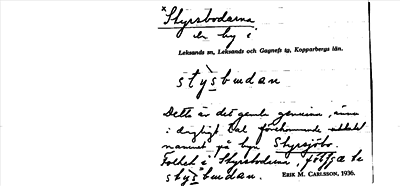 × Styrsbodarna
en by i
Leksands sn, Leksands och Gagnefs tg, Kopparbergs län.
stỳsbudan
Detta är det gamla genuina, ännu
i dagligt tal förekommande uttalet
namnet på byn Styrsjöbo.
Folket i Styrsbodarna,
stỳsbudan.
ERIK M. CARLSSON, 1936.